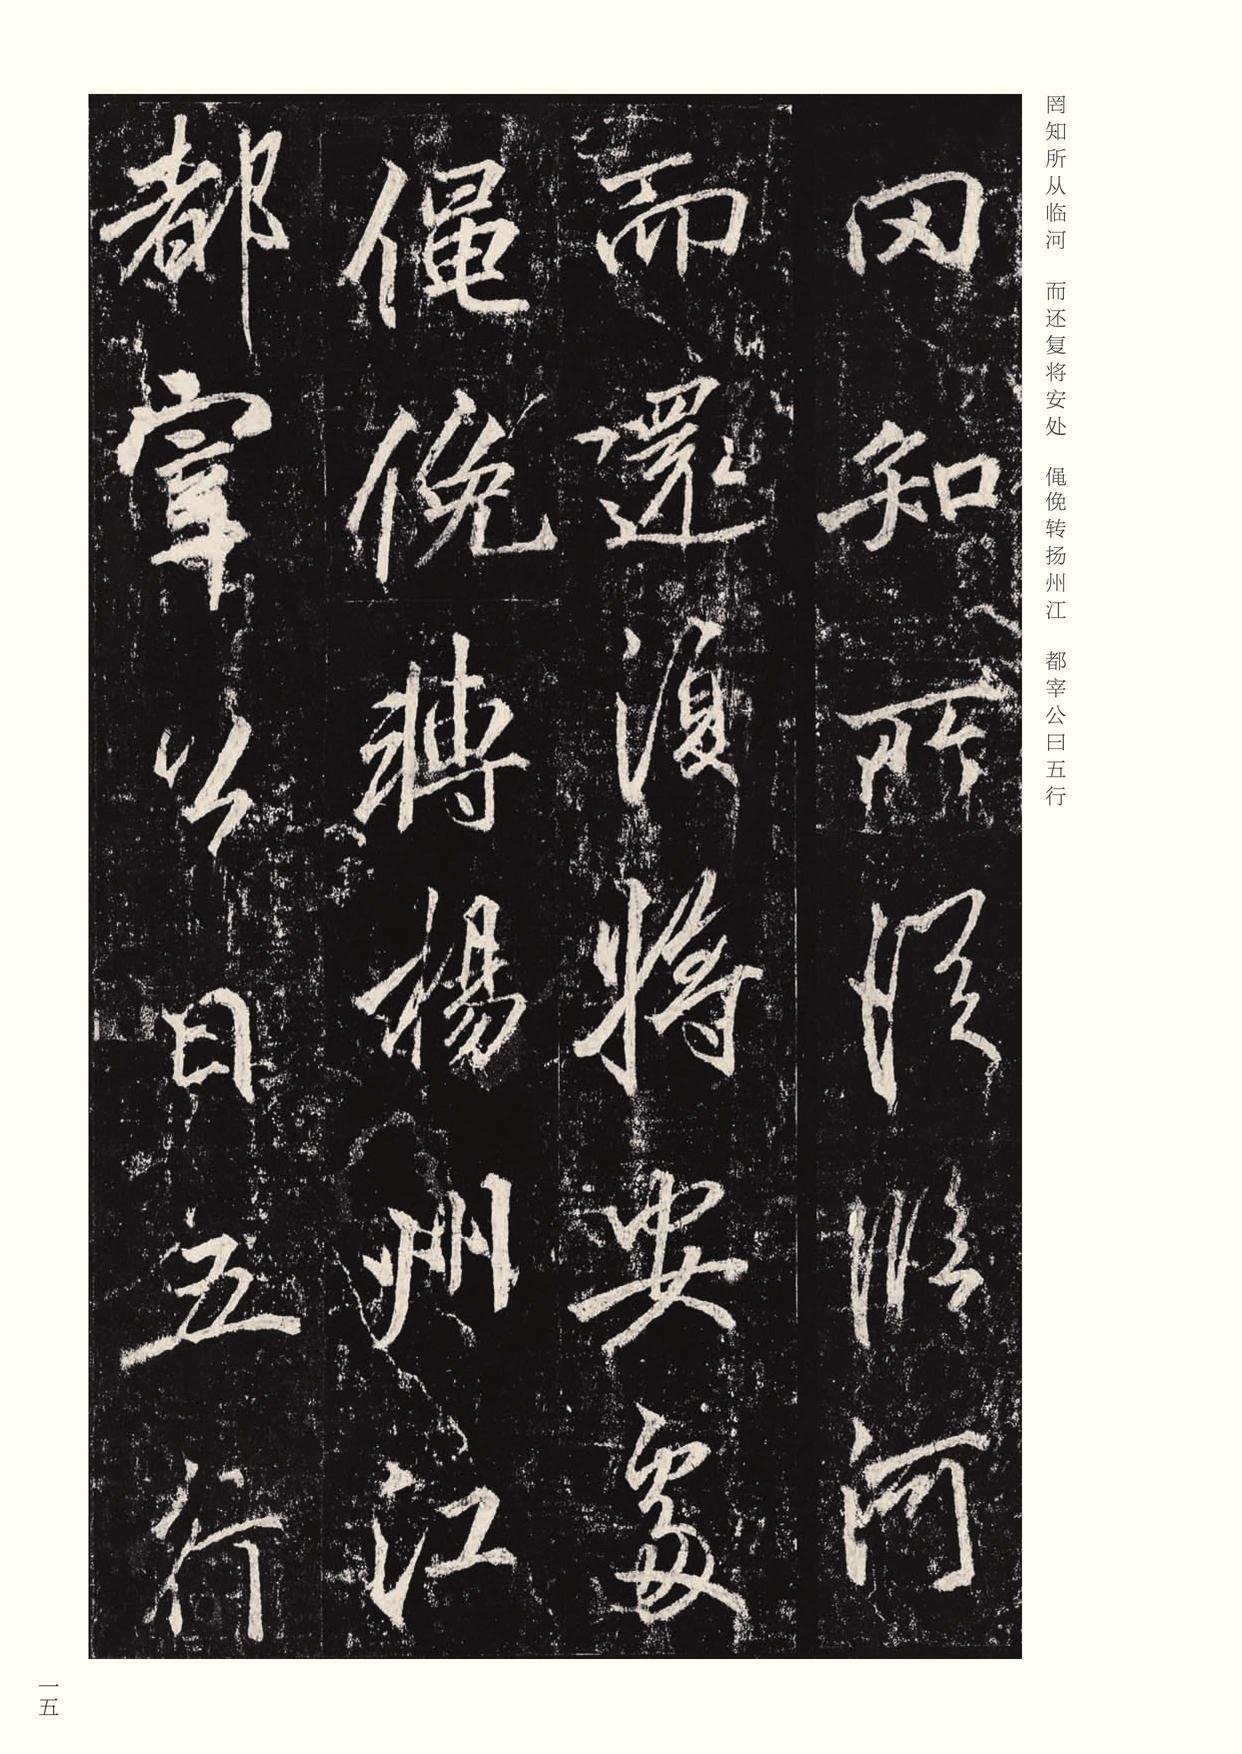 罔知所从临河　而还复将安处　僶俛转扬州江　都宰公曰五行
罔知所從臨河
而還復將安處
僶俛轉楊州江
都宰公曰五行
一五